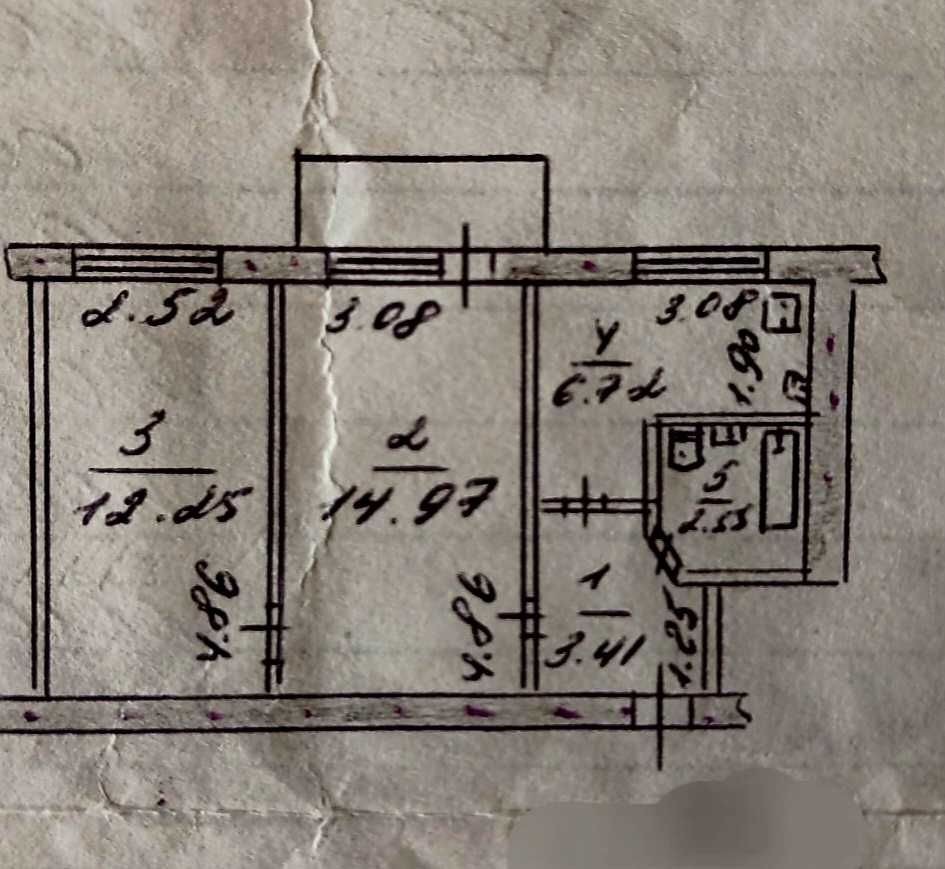 2.52
3.08
3.08
4
6.72
1.90
3
12.25
2
14.97
5
2.55
4.86
4.86
1
3.41
1.25